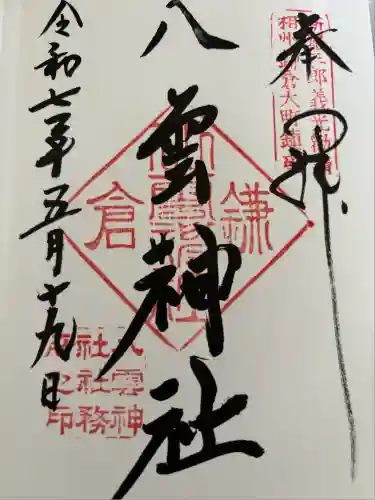 奉拝
八雲神社
令和七年五月十九日
新羅三郎義光勧請
相州鎌倉大町鎮座
鎌倉
八雲神
社社務
所之印